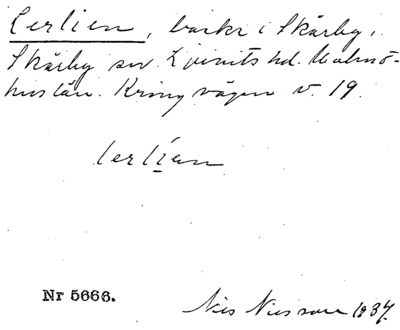 Lerlien, backe i Skårby,
Skårby sn. Ljunits hd. Malmö-
hus län. Kring vägen v. 19.
lerlíen
Nr 5666.
Nils Nilsson 1934.